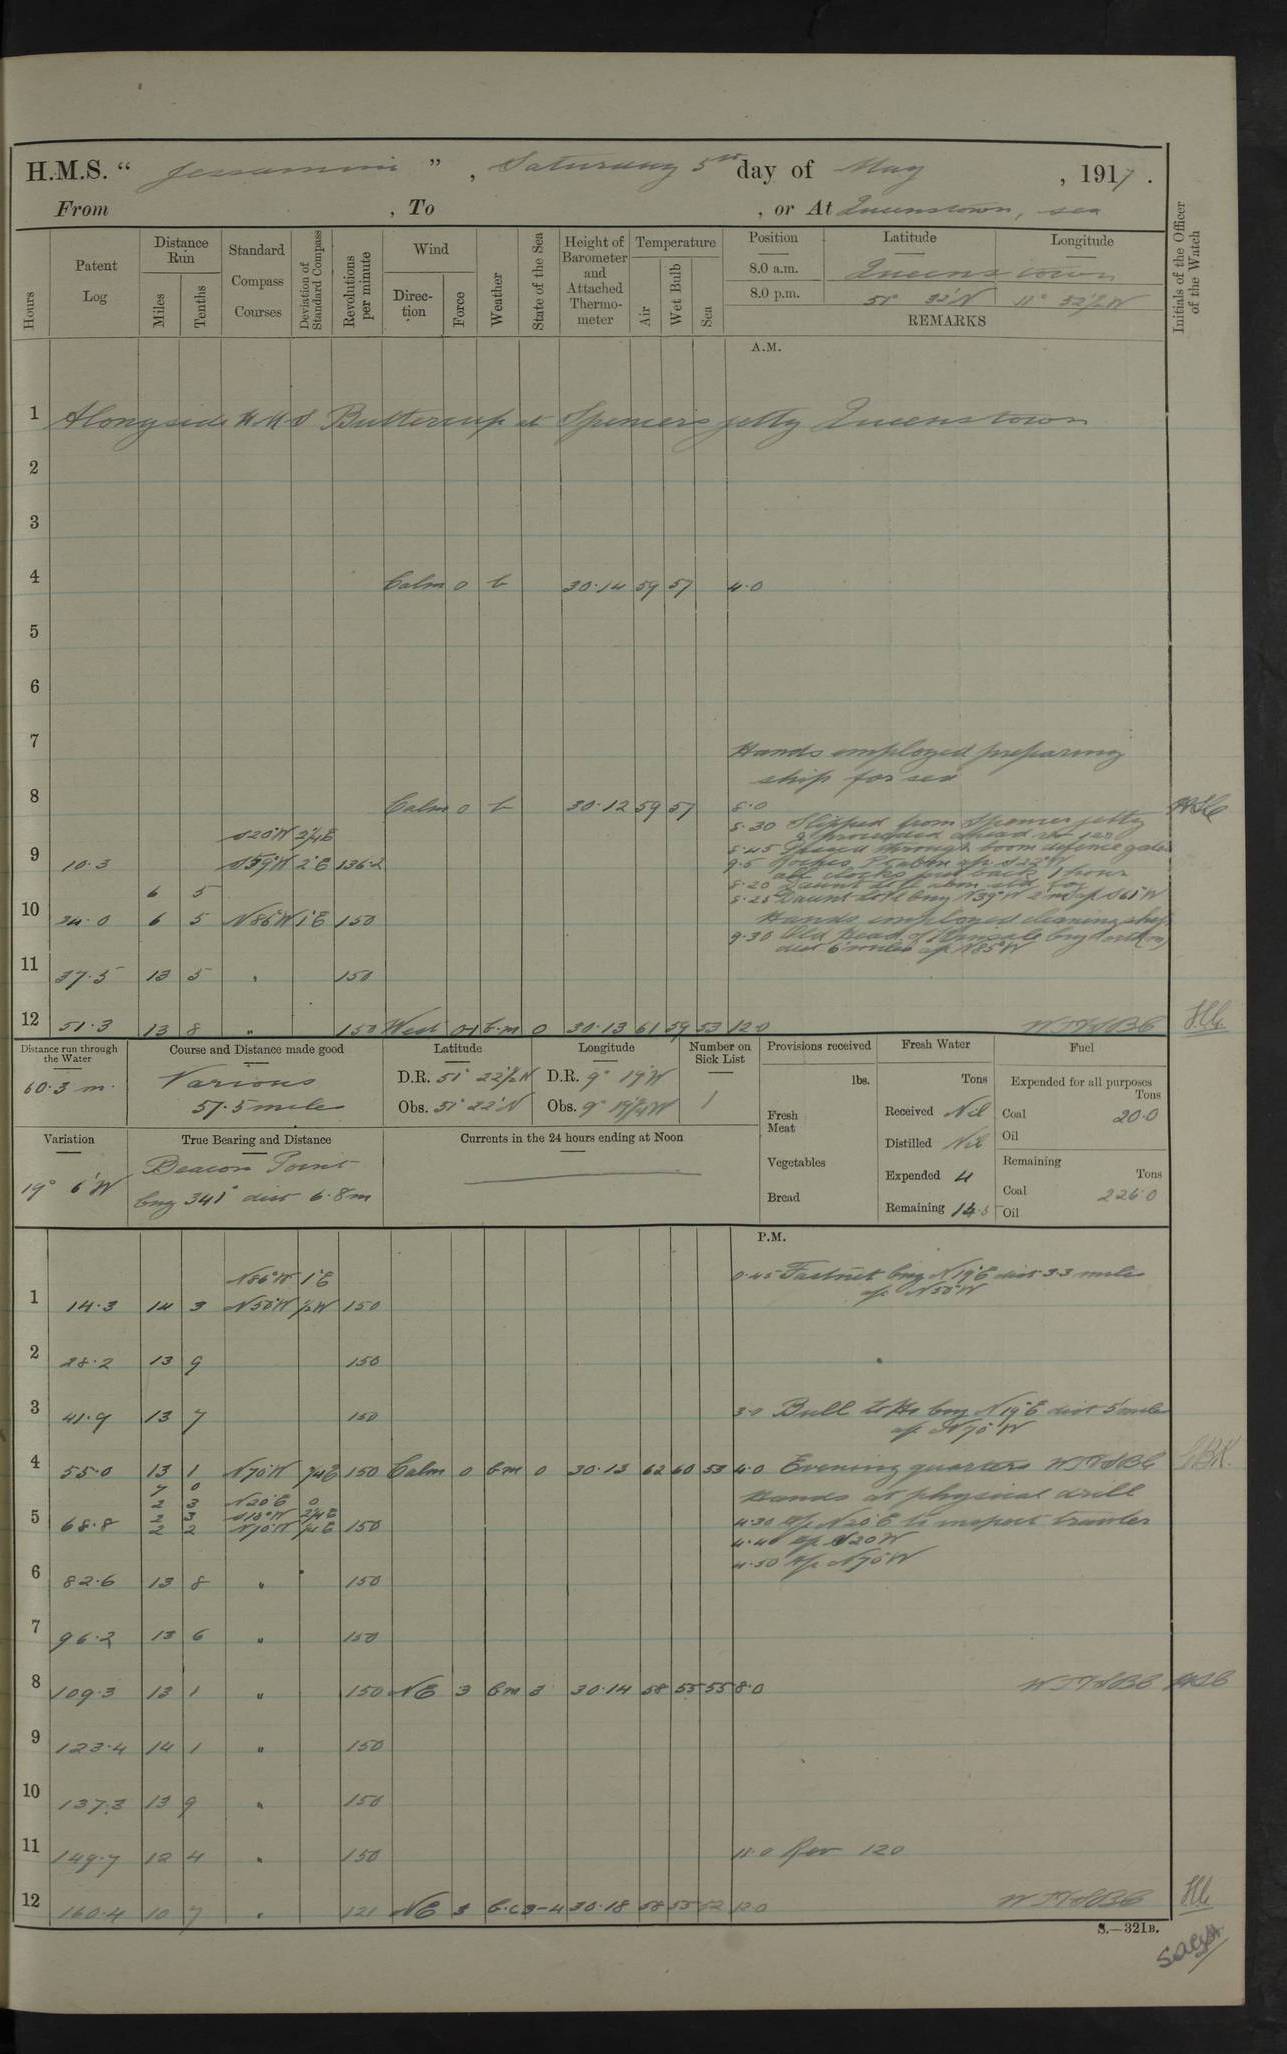 H.M.S. “ Jessamine ” , Saturday 5th day of May , 1917 .
From , To , or At Queenstown, sea
Hours
Patent Log
Distance Run
Miles
Tenths
Standard Compass Courses
Deviation of Standard Compass
Revolutions per minute
Wind
Direction
Force
Weather
State of the Sea
Height of Barometer and Attached Thermometer
Temperature
Air
Wet Bulb
Sea
Position Latitude Longitude
8.0 a.m. Queenstown
8.0 p.m. 51° 32'N 11° 32½'W
REMARKS
Initials of the Officer of the Watch
A.M.
1 Alongside HMS Buttercup at Spencers jetty Queenstown
2
3
4 Calm 0 b 30.14 59 57 4.0
5
6
7 Hands employed preparing
ship for sea
8 Calm 0 b 30.12 59 57 8.0
8.30 Slipped from Spencer jetty
& proceeded ahead rev 120
S20°W 2¼E
8.45 Passed through boom defence gate
9 10.3 S59°W 2°E 136.2
9.5 Roches Pt abm a/c S22°W
all clocks put back 1 hour
6 5
8.25 Daunt Lt Vl brg N39°W 2 m a/c S61°W
10 24.0 6 5 N86°W 1°E 150 Hands employed cleaning ship
9.30 Old Head of Kinsale brg
dist 6 miles a/c N85°W
11 37.5 13 5 " 150
12 51.3 13 8 " 150 West 0-1 b.m 0 30.13 61 59 53 12.0
Distance run through the Water
60.3 m.
Course and Distance made good
Various
57.5 mile
Latitude
D.R. 51° 22½'N
Obs. 51° 22'N
Longitude
D.R. 9° 19'W
Obs. 9° 19½'W
Number on Sick List
1
Provisions received
lbs.
Fresh Meat
Vegetables
Bread
Fresh Water
Tons
Received Nil
Distilled Nil
Expended 4
Remaining 14.5
Fuel
Expended for all purposes
Tons
Coal 20.0
Oil
Remaining
Tons
Coal 226.0
Oil
Variation
19° 6'W
True Bearing and Distance
Beacon Point
brg 341° dist 6.8m
Currents in the 24 hours ending at Noon
P.M.
N86°W 1°E
0.45 Fastnet brg N19°E dist 3.3 miles
a/c N50°W
1 14.3 14 3 N50°W ½W 150
2 28.2 13 9 150
3 41.9 13 7 150 3.0 Bull Lt Ho brg N19°E dist 5 mile
a/c N70°W
4 55.0 13 1 N70°W ¾E 150 Calm 0 bm 0 30.13 62 60 53 4.0 Evening quarters
7 0
Hands at physical drill
2 3 N20°E 0
2 3 S10°W 2¼E
5 68.8 2 2 N70°W ¾E 150 4.30 a/c N20°E to inspect trawler
4.40 a/c S20W
4.50 a/c N70°W
6 82.6 13 8 " 150
7 96.2 13 6 " 150
8 109.3 13 1 " 150 NE 3 bm 3 30.14 58 55 55 8.0
9 123.4 14 1 " 150
10 137.3 13 9 " 150
11 149.7 12 4 " 150 11.0 Rev 120
12 160.4 10 7 " 121 NE 3 b.c 3-4 30.18 58 55 52 12.0
S.—321B.